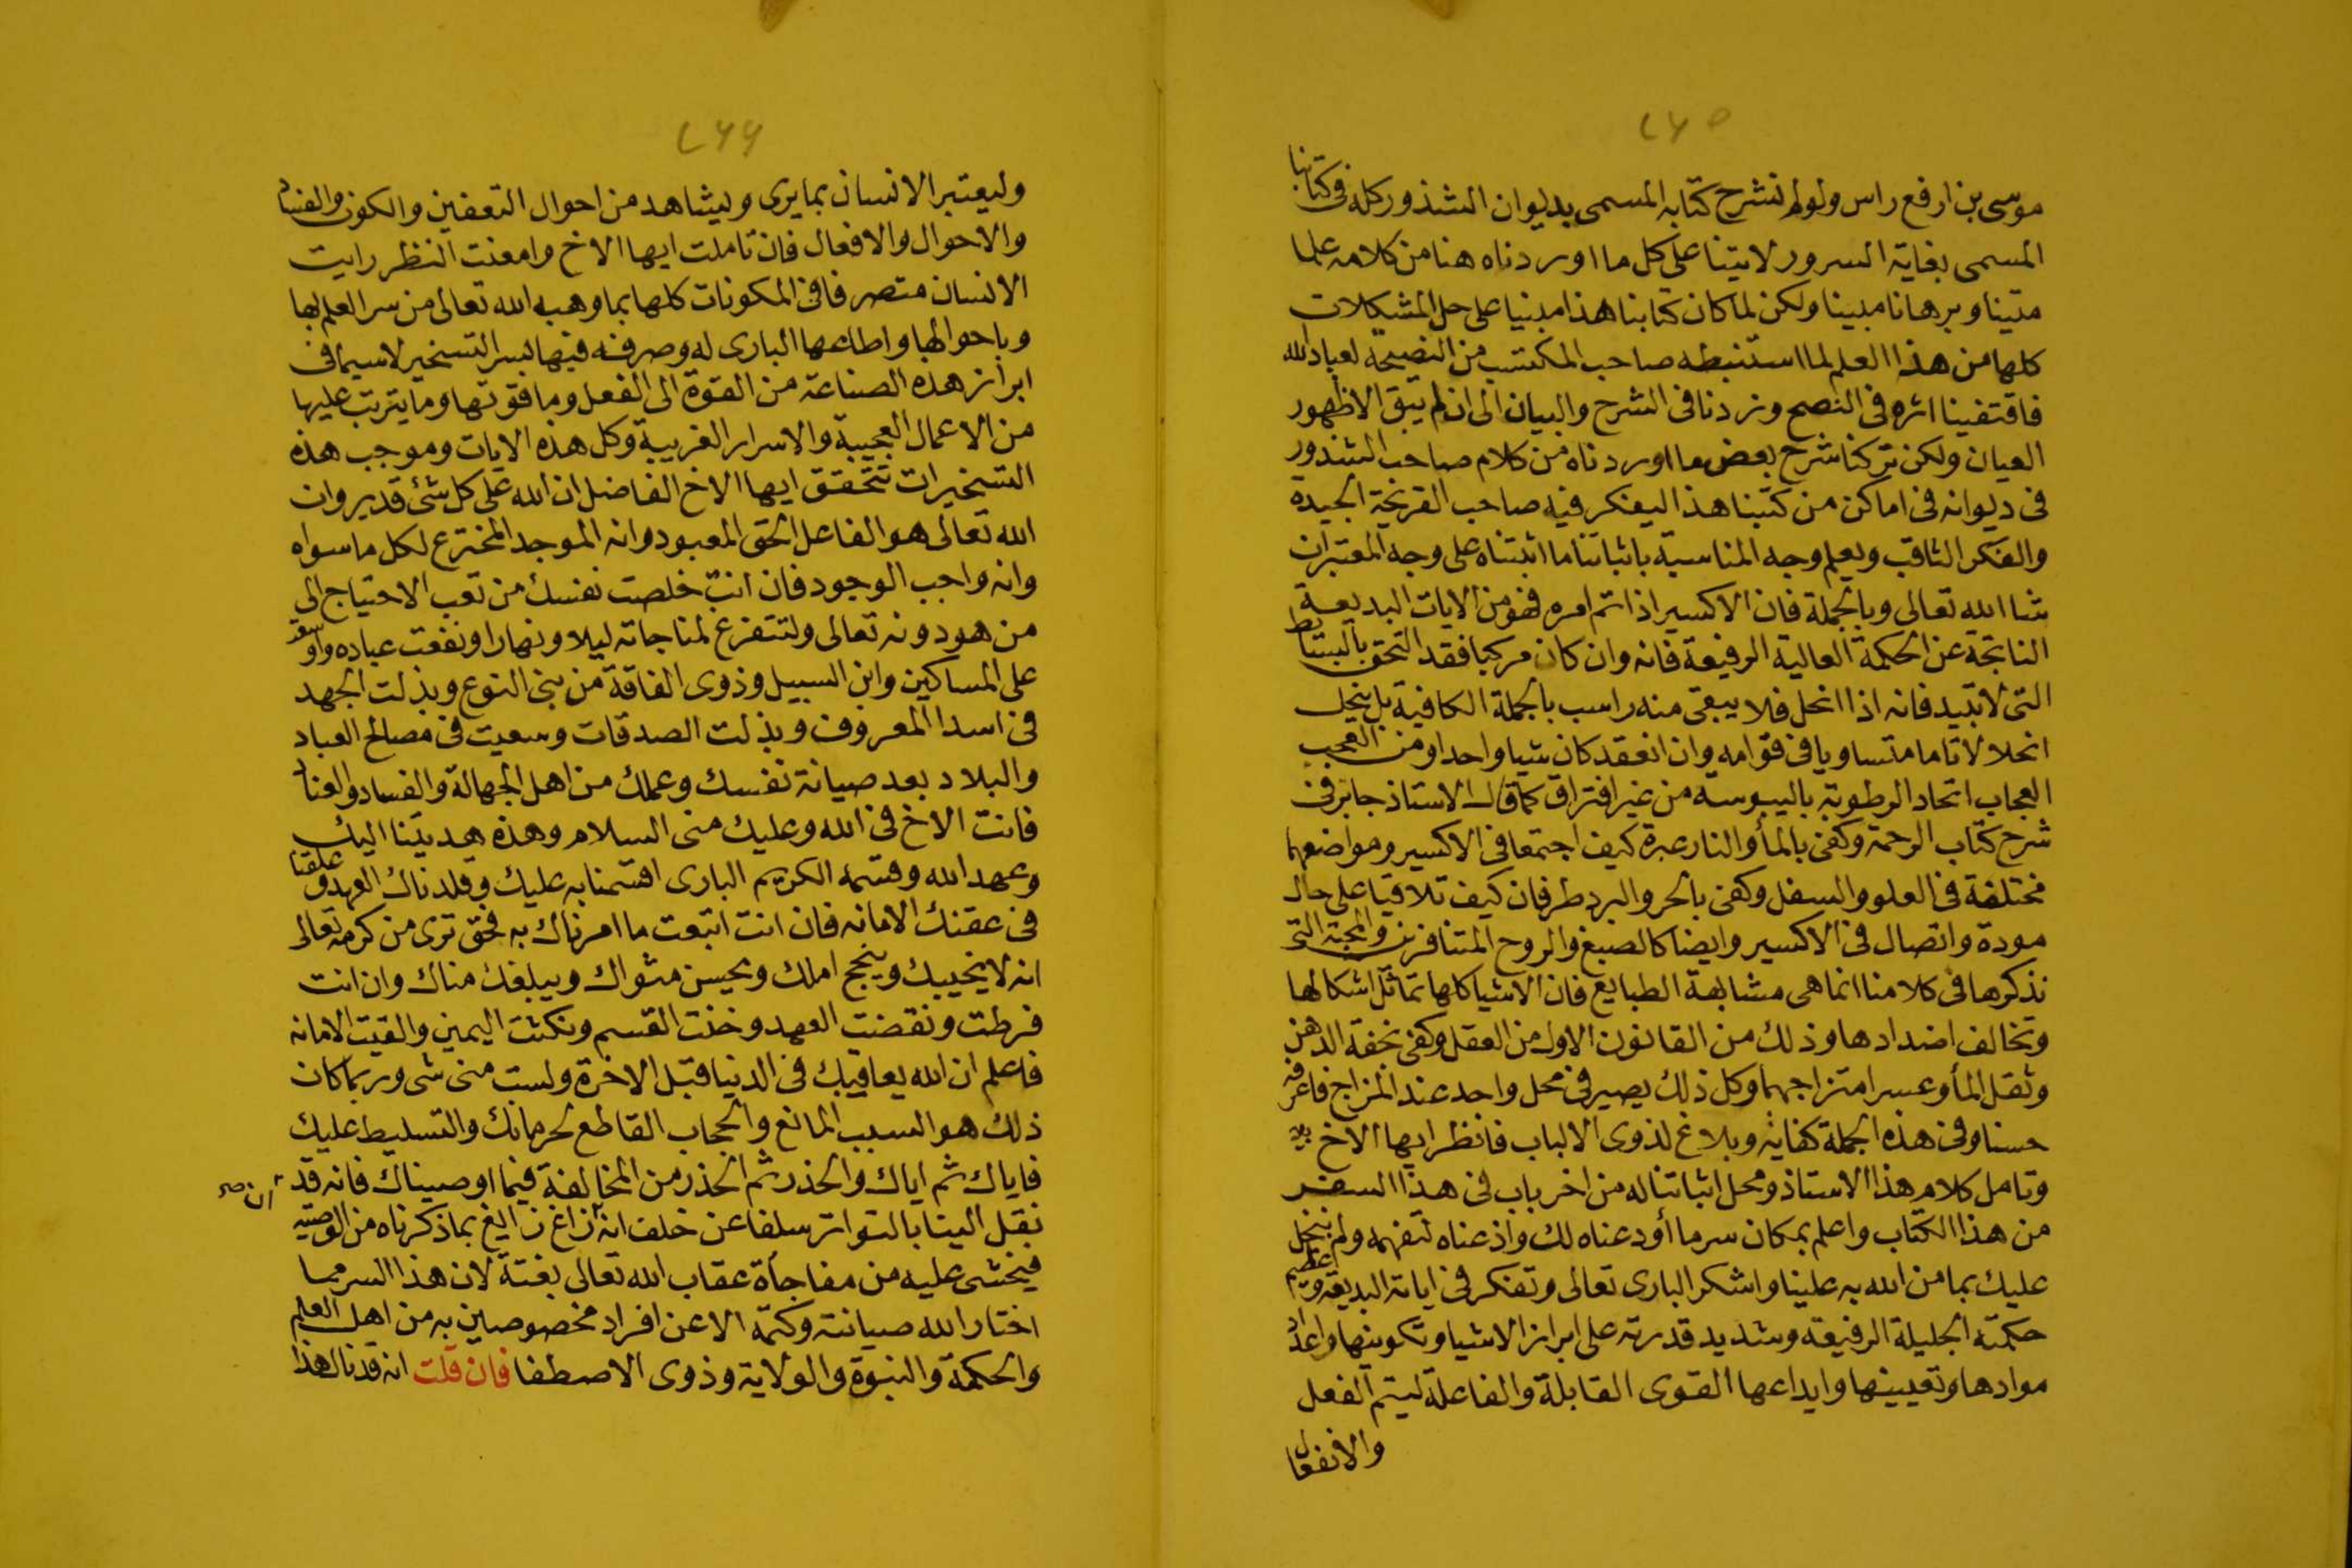 ٢٦٥
موسى بن ارفع راس ولولم نشرح كتابه المسمى بديوان الشذور كله فى كتابنا
المسمى بغاية السرور لاتينا على كل ما اوردناه هنا من كلامه علما
متينا وبرهانا مبينا ولكن لما كان كتابنا هذا مبنيا على حل المشكلات
كلها من هذا العلم لما استنبطه صاحب المكتسب من النصيحة لعباد الله
فاقتفينا اثره فى النصح وزدنا فى الشرح والبيان الى ان لم يبق الا ظهور
العيان ولكن تركنا شرح بعض ما اوردناه من كلام صاحب الشذور
فى ديوانه فى اماكن من كتبنا هذا ليفكر فيه صاحب القريحة الجيدة
والفكر الثاقب ويعلم وجه المناسبة باثباتنا ما اثبتناه على وجه المعتبر ان
شا الله تعالى وبالجملة فان الاكسير اذا تم امره فهو من الايات البديعة
الناتجة عن الحكمة العالية الرفيعة فانه وان كان مركبا فقد التحق بالبسائط
التى لا تبيد فانه اذا انحل فلا يبقى منه راسب بالجملة الكافية بل ينحل
انحلالا تاما متساويا فى قوامه وان انعقد كان شيا واحدا ومن العجب
العجاب اتحاد الرطوبة باليبوسة من غير افتراق كما قال الاستاذ جابر فى
شرح كتاب الرحمة وكفى بالمأ والنار عبرة كيف اجتمعا فى الاكسير ومواضعهما
مختلفة فى العلو والسفل وكفى بالحر والبرد طرفان كيف تلاقيا على حال
مودة واتصال فى الاكسير وايضا كالصبغ والروح المتنافرين والمحبة التى
نذكرها فى كلامنا انما هى مشابهة الطبايع فان الاشيا كلها تماثل اشكالها
وتخالف اضدادها وذلك من القانون الاول من العقل وكفى بخفة الدهن
وثقل المأ وعسر امتزاجهما وكل ذلك يصير فى محل واحد عند المزاج فاعرفه
حسنا وفى هذه الجملة كفاية وبلاغ لذوى الالباب فانظر ايها الاخ
وتامل كلام هذا الاستاذ ومحل اثباتنا له من اخر باب فى هذا السفر
من هذا الكتاب واعلم بمكان سر ما أودعناه لك واذعناه لتفهمه ولم نبخل
عليك بما من الله به علينا واشكر البارى تعالى وتفكر فى اياته البديعة وعظيم
حكمته الجليلة الرفيعة وشديد قدرته على ابراز الاشيا وتكوينها واعداد
موادها وتعيينها وايداعها القوى القابلة والفاعلة ليتم الفعل
والانفعال
٢٦٦
وليعتبر الانسان بما يرى ويشاهد من احوال التعفين والكون والفساد
والاحوال والافعال فان تاملت ايها الاخ وامعنت النظر رايت
الانسان متصرفا فى المكونات كلها بما وهبه الله تعالى من سر العلم بها
وباحوالها واطاعها البارى له وصرفه فيها بسر التسخير لاسيما فى
ابراز هذه الصناعة من القوة الى الفعل وما فوقها وما يترتب عليها
من الاعمال العجيبة والاسرار الغريبة وكل هذه الايات وموجب هذه
التسخيرات تتحقق ايها الاخ الفاضل ان الله على كل شئ قدير وان
الله تعالى هو الفاعل الحق المعبود وانه الموجد المخترع لكل ما سواه
وانه واجب الوجود فان انت خلصت نفسك من تعب الاحتياج الى
من هو دونه تعالى ولتتفرغ لمناجاته ليلا ونهارا ونفعت عباده واوسعت
على المساكين وابن السبيل وذوى الفاقة من بنى النوع وبذلت الجهد
فى اسدا المعروف وبذلت الصدقات وسعيت فى مصالح العباد
والبلاد بعد صيانة نفسك وعملك من اهل الجهالة والفساد والعناد
فانت الاخ فى الله وعليك منى السلام وهذه هديتنا اليك
وعهد الله وقسمه الكريم البارى اقسمنا به عليك وقلدناك العهد وعلقنا
فى عقنك الامانه فان انت اتبعت ما امرناك به فحق ترى من كرمه تعالى
انه لا يخيبك وينجح املك ويحسن مثواك ويبلغك مناك وان انت
فرطت ونقضت العهد وخنت القسم ونكثت اليمين والقيت الامانه
فاعلم ان الله يعاقبك فى الدنيا قبل الاخرة ولست منى شى وربما كان
ذلك هو السبب المانع والحجاب القاطع لحرمانك والتسليط عليك
فاياك ثم اياك والحذر ثم الحذر من المخالفة فيما اوصيناك فانه قد
نقل الينا بالتواتر سلفا عن خلف انه زاغ زايغ بما ذكرناه من الوصية
فيخشى عليه من مفاجأة عقاب الله تعالى بغتة لان هذا السر مما
اختار الله صيانته وكتمه الا عن افراد مخصوصين به من اهل العلم
والحكمة والنبوة والولاية وذوى الاصطفا فان قلت انه قد نال هذا
ان صح